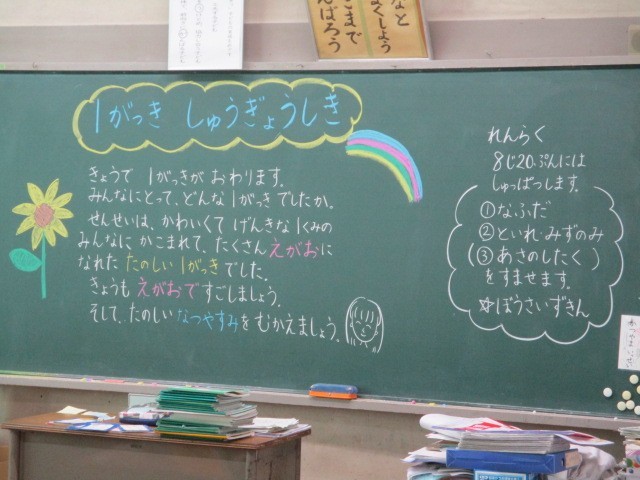 なと
よくしよう
こまで
んばろう
1がっき しゅうぎょうしき
きょうで 1がっきが おわります。
みんなにとって、どんな1がっきでしたか。
せんせいは、かわいくて げんきな1くみの
みんなに かこまれて、たくさん えがおに
なれた たのしい 1がっきでした。
きょうも えがおで すごしましょう。
そして、たのしい なつやすみを むかえましょう。
れんらく
8じ20ぷんには
しゅっぱつします。
①なふだ
②といれ・みずのみ
(③あさのしたく)
をすませます。
☆ぼうさいずきん